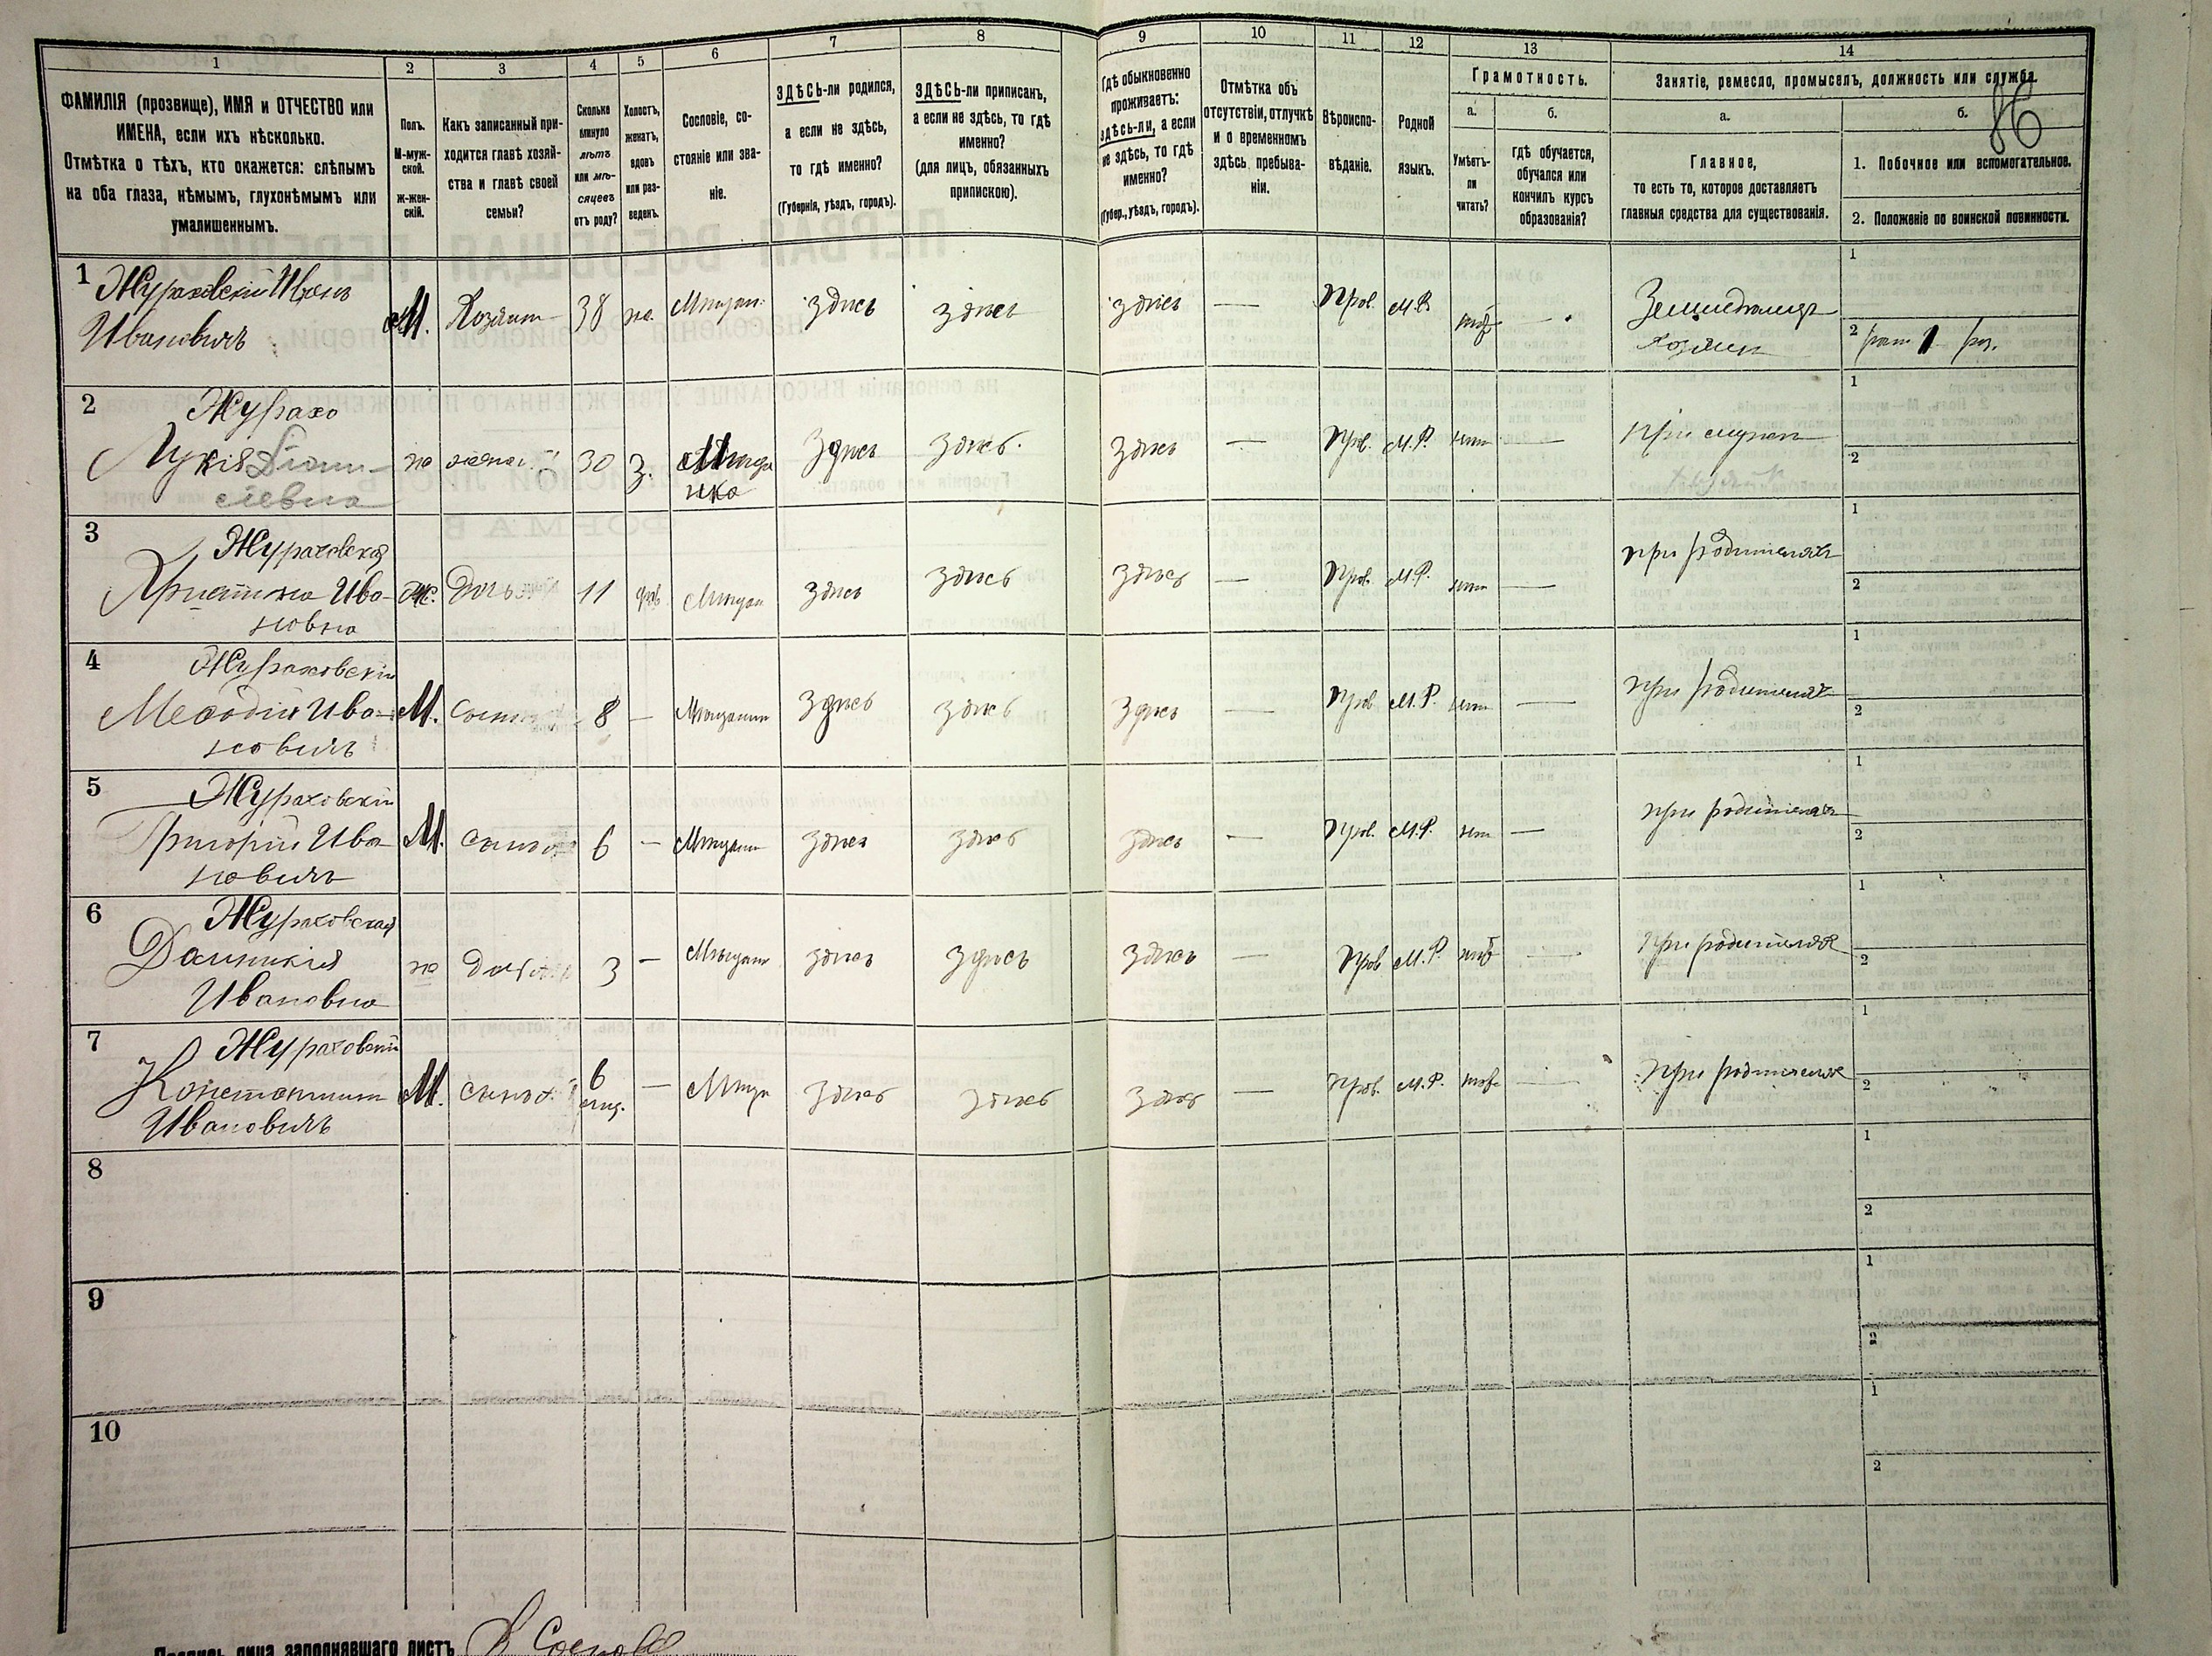 86
1 2 3 4 5 6 7 8 9 10 11 12 13 14
ФАМИЛІЯ (прозвище), ИМЯ и ОТЧЕСТВО или
ИМЕНА, если ихъ нѣсколько.
Отмѣтка о тѣхъ, кто окажется: слѣпымъ
на оба глаза, нѣмымъ, глухонѣмымъ или
умалишеннымъ.
Полъ.
М-муж-
ской.
Ж-жен-
скій.
Какъ записанный при-
ходится главѣ хозяй-
ства и главѣ своей
семьи?
Сколько
минуло
лѣтъ
или мѣ-
сяцевъ
отъ роду?
Холостъ,
женатъ,
вдовъ
или раз-
веденъ.
Сословіе, со-
стояніе или зва-
ніе.
ЗДѢСЬ-ли родился,
а если не здѣсь,
то гдѣ именно?
(Губернія, уѣздъ, городъ).
ЗДѢСЬ-ли приписанъ,
а если не здѣсь, то гдѣ
именно?
(для лицъ, обязанныхъ
припискою).
Гдѣ обыкновенно
проживаетъ:
здѣсь-ли, а если
не здѣсь, то гдѣ
именно?
(Губер., уѣздъ, городъ).
Отмѣтка объ
отсутствіи, отлучкѣ
и о временномъ
здѣсь пребыва-
ніи.
Вѣроиспо-
вѣданіе.
Родной
языкъ.
Грамотность.
а.
Умѣетъ-
ли
читать?
б.
гдѣ обучается,
обучался или
кончилъ курсъ
образованія?
Занятіе, ремесло, промыселъ, должность или служба.
а.
Главное,
то есть то, которое доставляетъ
главныя средства для существованія.
б.
1. Побочное или вспомогательное.
2. Положеніе по воинской повинности.
1 Жураховскій Иванъ
Ивановичъ
М. Хозяин 38 же. Мещан. здесь здесь здесь — Прав. М.Р. нет —
Земледелец
хозяин
1
2
2 Журахо
Лукія
М ж жена 30 З. Мещан
ка
здесь здесь здесь — Прав. М.Р. нет — при муже
1
2
3 Жураховская
Христина Ива-
новна
Ж. Дочь 11 дев. Мещан здесь здесь здесь — Прав. М.Р. нет — при родителях
1
2
4 Жураховскій
Мефодій Ива-
новичъ
М. Сын 8 — Мещанин здесь здесь здесь — Прав М.Р. нет — при родителях
1
2
5 Жураховскій
Григорій Ива
новичъ
М. сын 6 — Мещанин здесь здесь здесь — Прав. М.Р. нет — при родителях
1
2
6 Жураховская
Домникія
Ивановна
ж дочь 3 — Мещан здесь здесь здесь — Прав М.Р нет — при родителях
1
2
7 Жураховскій
Константин
Ивановичъ
М. сын 6
мец.
— Мещ здесь здесь здесь — Прав. М.Р. нет — при родителях
1
2
8
1
2
9
1
2
10
1
2
Подпись лица заполнявшаго листъ